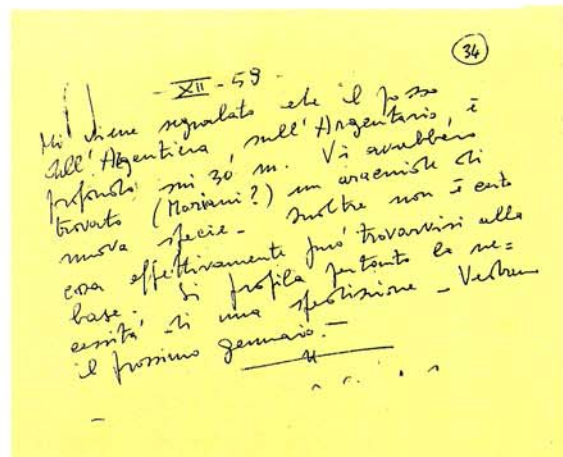 34
- XII - 59 -
Mi viene segnalato che il pozzo
dell'Argentiera, sull'Argentario, è
profondo sui 30 m. Vi avrebbero
trovato (Mariani?) un aracnide di
nuova specie - Inoltre non è certo
cosa effettivamente può trovarvisi alla
base. Si profila pertanto la ne=
cessità di una spedizione - Vedremo
il prossimo gennaio. -